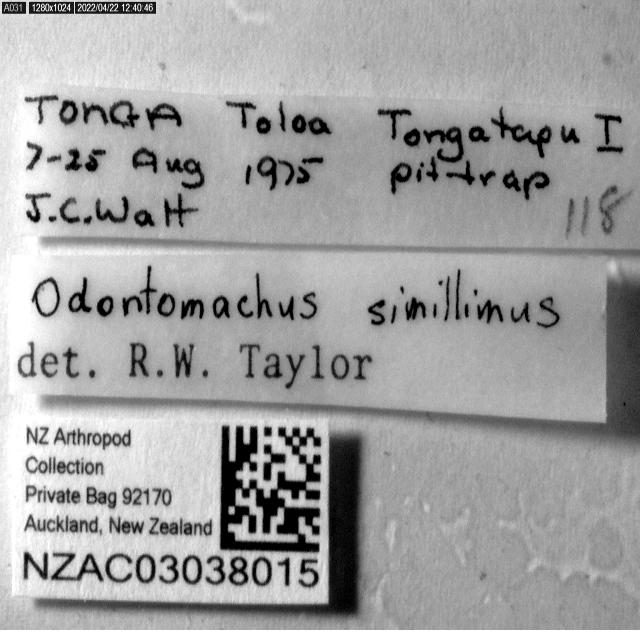 A031 1280x1024 2022/04/22 12:40:46
TONGA Toloa Tongatapu I
7-25 Aug 1975 pit-trap
J.C.Watt
118
Odontomachus simillimus
det. R.W. Taylor
NZ Arthropod
Collection
Private Bag 92170
Auckland, New Zealand
NZAC03038015